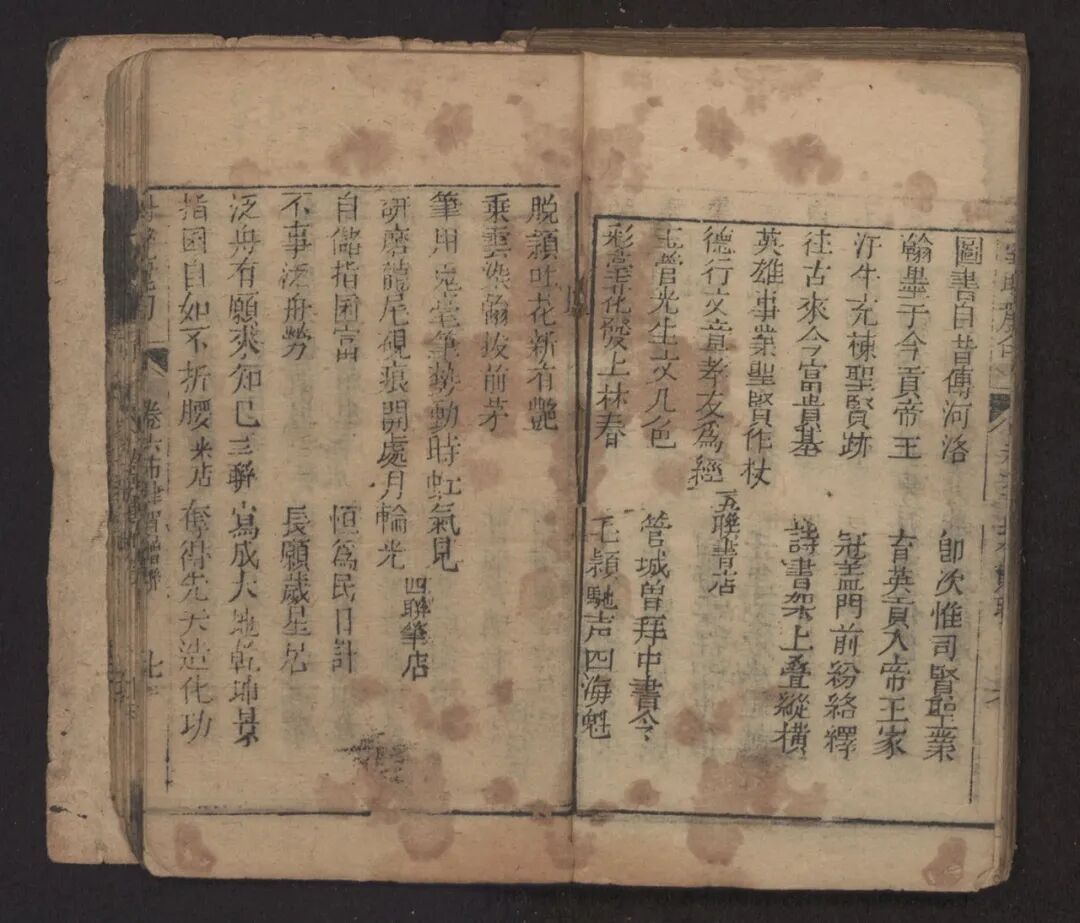 圖書自昔傳河洛 卽次惟司賢聖業
翰墨于今貢帝王 育英貢入帝王家
汗牛充棟聖賢跡 冠蓋門前紛絡繹
往古來今富貴基 詩書架上疊縱橫
英雄事業聖賢作杖
德行文章孝友為經 五聯書店
玉管光生文几色 管城曾拜中書令
彩毫花發上林春 毛穎馳声四海魁
脫穎吐花新有艶
乘雲染翰拔前茅
筆用兔毫筆勢動時虹氣見
研磨龍尾硯痕開處月輪光 四聯筆店
自儲指囷富 恒為民日計
不事泛舟勞 長願歲星居
泛舟有願來知巳 三聯 寫成大地乾坤景
指囷自如不折腰 米店 奪得先天造化功
卷六 七